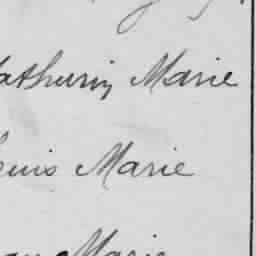 athurin Marie
ouis Marie
Marie